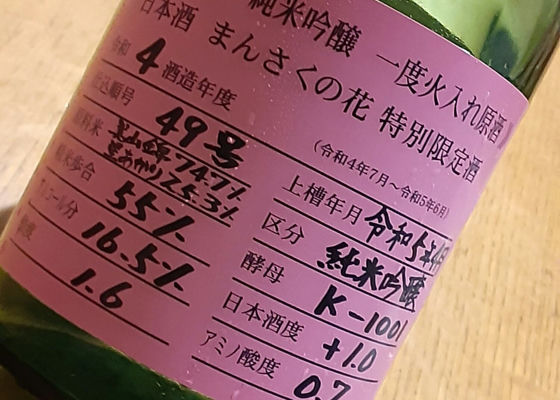 純米吟醸 一度火入れ原酒
日本酒 まんさくの花 特別限定酒
令和4酒造年度
(令和4年7月〜令和5年6月)
仕込順号 49号
上槽年月 令和5年4月
原料米 74.7%
25.3%
区分 純米吟醸
精米歩合 55%
酵母 K-1001
アルコール分 16.5%
日本酒度 +1.0
酸度 1.6
アミノ酸度 0.7